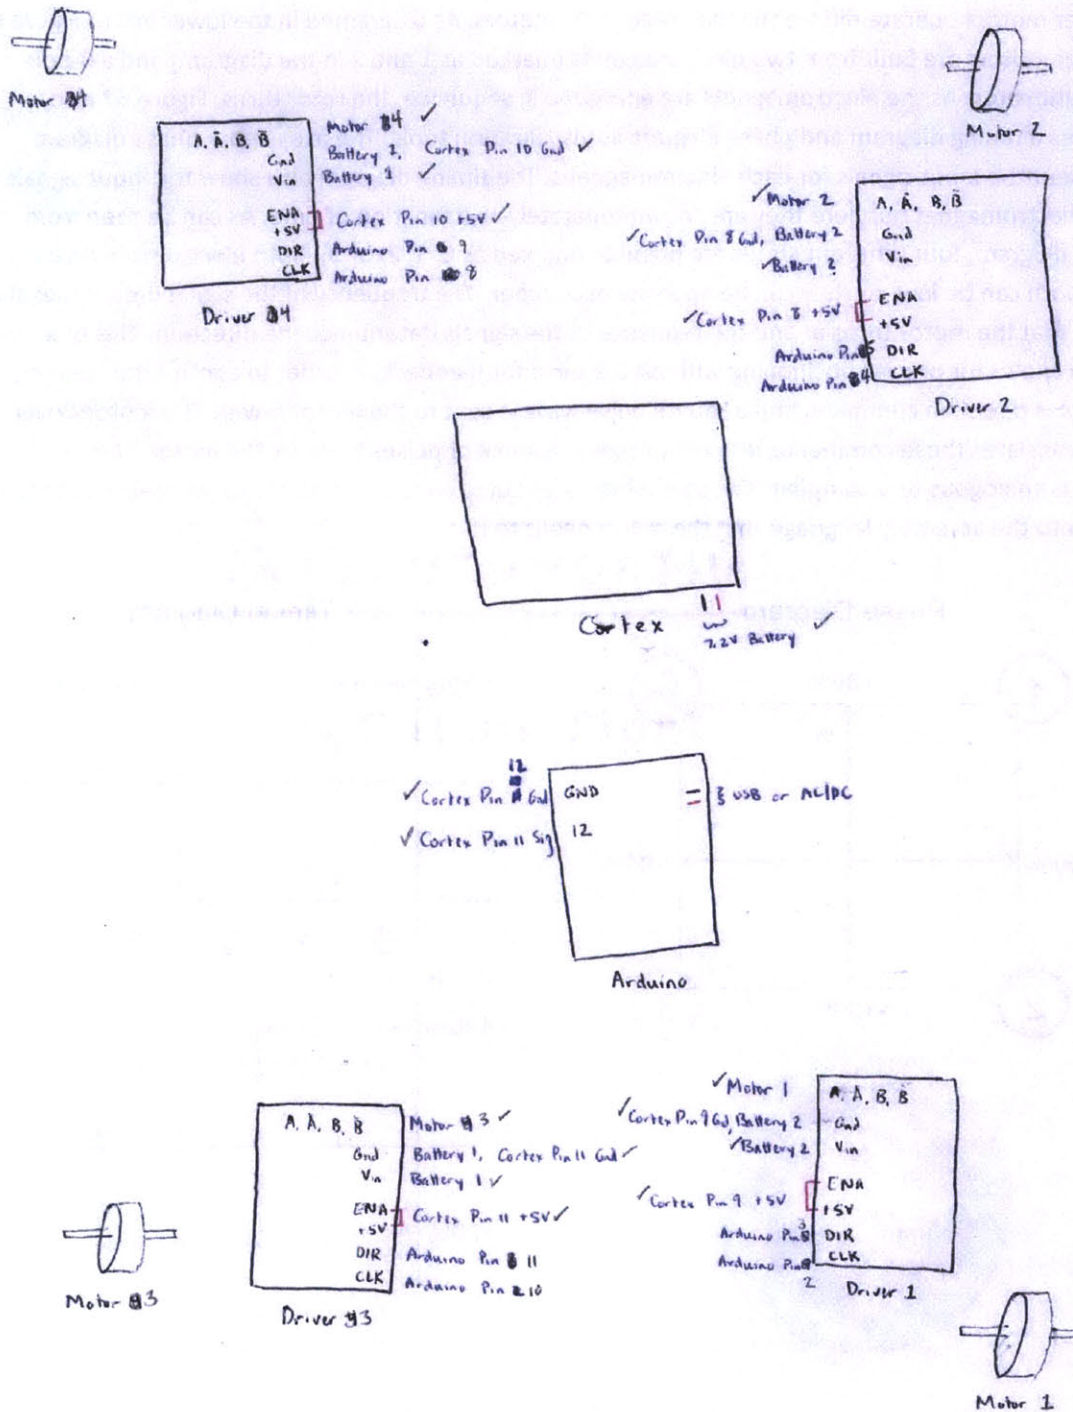 Motor #4
A, Ā, B, B̄
Gnd
Vin
ENA
+5V
DIR
CLK
Motor #4 ✓
Battery 1, Cortex Pin 10 Gnd ✓
Battery 1 ✓
Cortex Pin 10 +5V ✓
Arduino Pin 9
Arduino Pin 8
Driver #4
Motor 2
✓ Motor 2
✓ Cortex Pin 8 Gnd, Battery 2
✓ Battery 2
✓ Cortex Pin 8 +5V
Arduino Pin 5
Arduino Pin 4
A, Ā, B, B̄
Gnd
Vin
ENA
+5V
DIR
CLK
Driver 2
Cortex
7.2V Battery ✓
✓ Cortex Pin 12 Gnd
✓ Cortex Pin 11 Sig
GND
12
USB or AC/DC
Arduino
A, Ā, B, B̄
Gnd
Vin
ENA
+5V
DIR
CLK
Motor #3 ✓
Battery 1, Cortex Pin 11 Gnd ✓
Battery 1 ✓
Cortex Pin 11 +5V ✓
Arduino Pin 11
Arduino Pin 10
Driver #3
Motor #3
✓ Motor 1
✓ Cortex Pin 9 Gd, Battery 2
✓ Battery 2
✓ Cortex Pin 9 +5V
Arduino Pin 3
Arduino Pin 2
A, Ā, B, B̄
Gnd
Vin
ENA
+5V
DIR
CLK
Driver 1
Motor 1